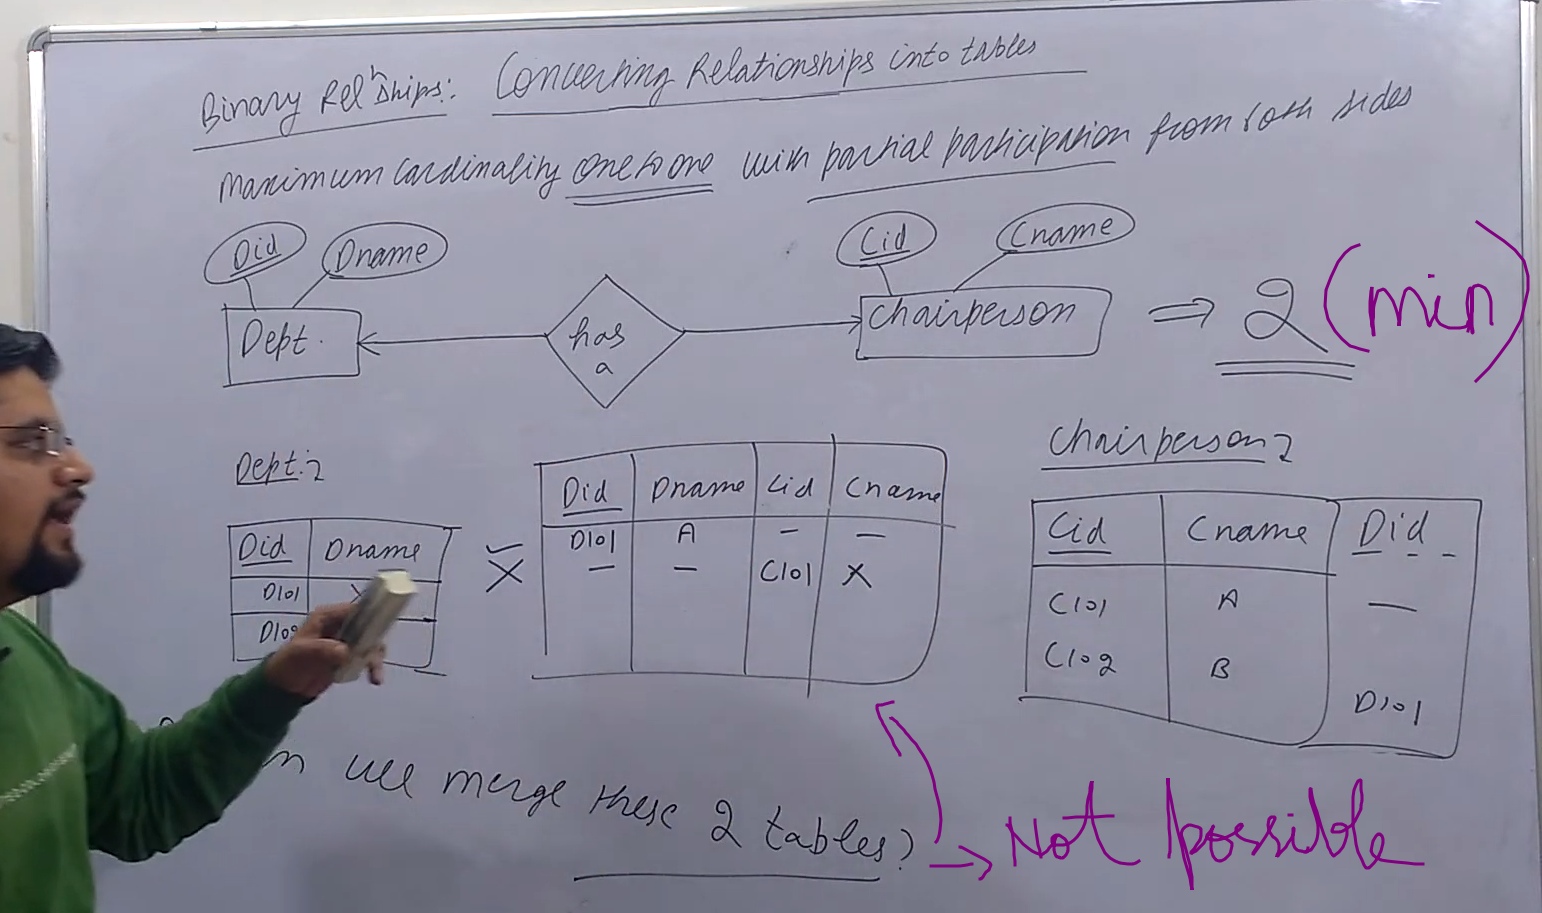 Binary Rel^nships: Converting Relationships into tables
Maximum Cardinality one to one with partial participation from both sides
Did Dname Cid Cname
Dept. has a Chairperson ⇒ 2 (min)
Dept:
Did Dname
D101 X
Did Dname Cid Cname
D101 A – –
– – C101 X
Chairperson:
Cid Cname Did
C101 A –
C102 B D101
we merge these 2 tables? → Not possible